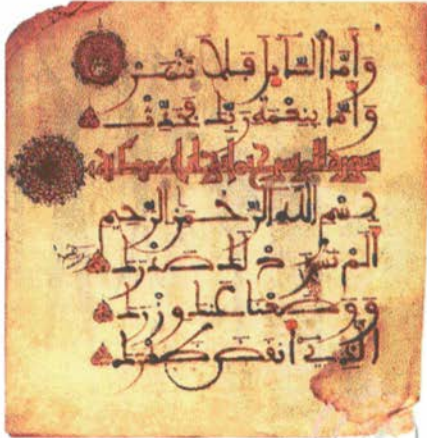 وأما السائل فلا تنهر
وأما بنعمة ربك فحدث
سورة الم نشرح
بسم الله الرحمن الرحيم
ألم نشرح لك صدرك
ووضعنا عنك وزرك
الذي أنقض ظهرك